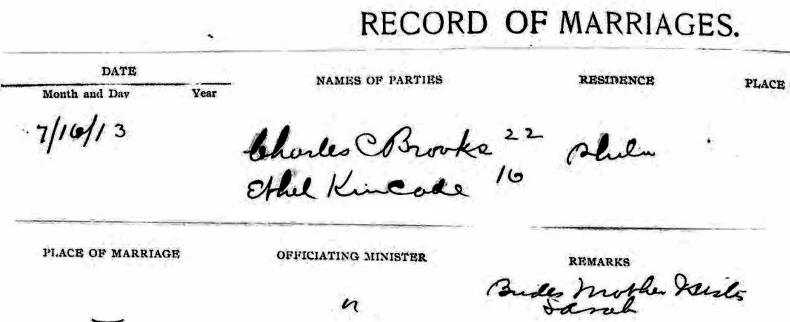 RECORD OF MARRIAGES.
DATE NAMES OF PARTIES RESIDENCE PLACE
Month and Day Year
7/16/13 Charles C Brooks 22
Ethel Kincade 16
PLACE OF MARRIAGE OFFICIATING MINISTER REMARKS
"
Brides Mother
Sarah